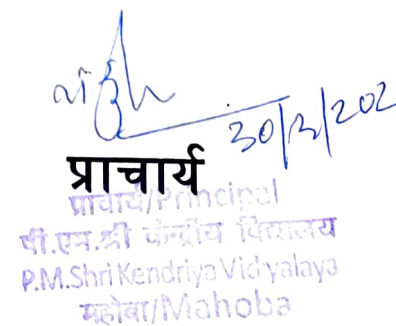 30/12/202
प्राचार्य
प्राचार्य/Principal
पी.एम.श्री केन्द्रीय विद्यालय
P.M.Shri Kendriya Vidyalaya
महोबा/Mahoba